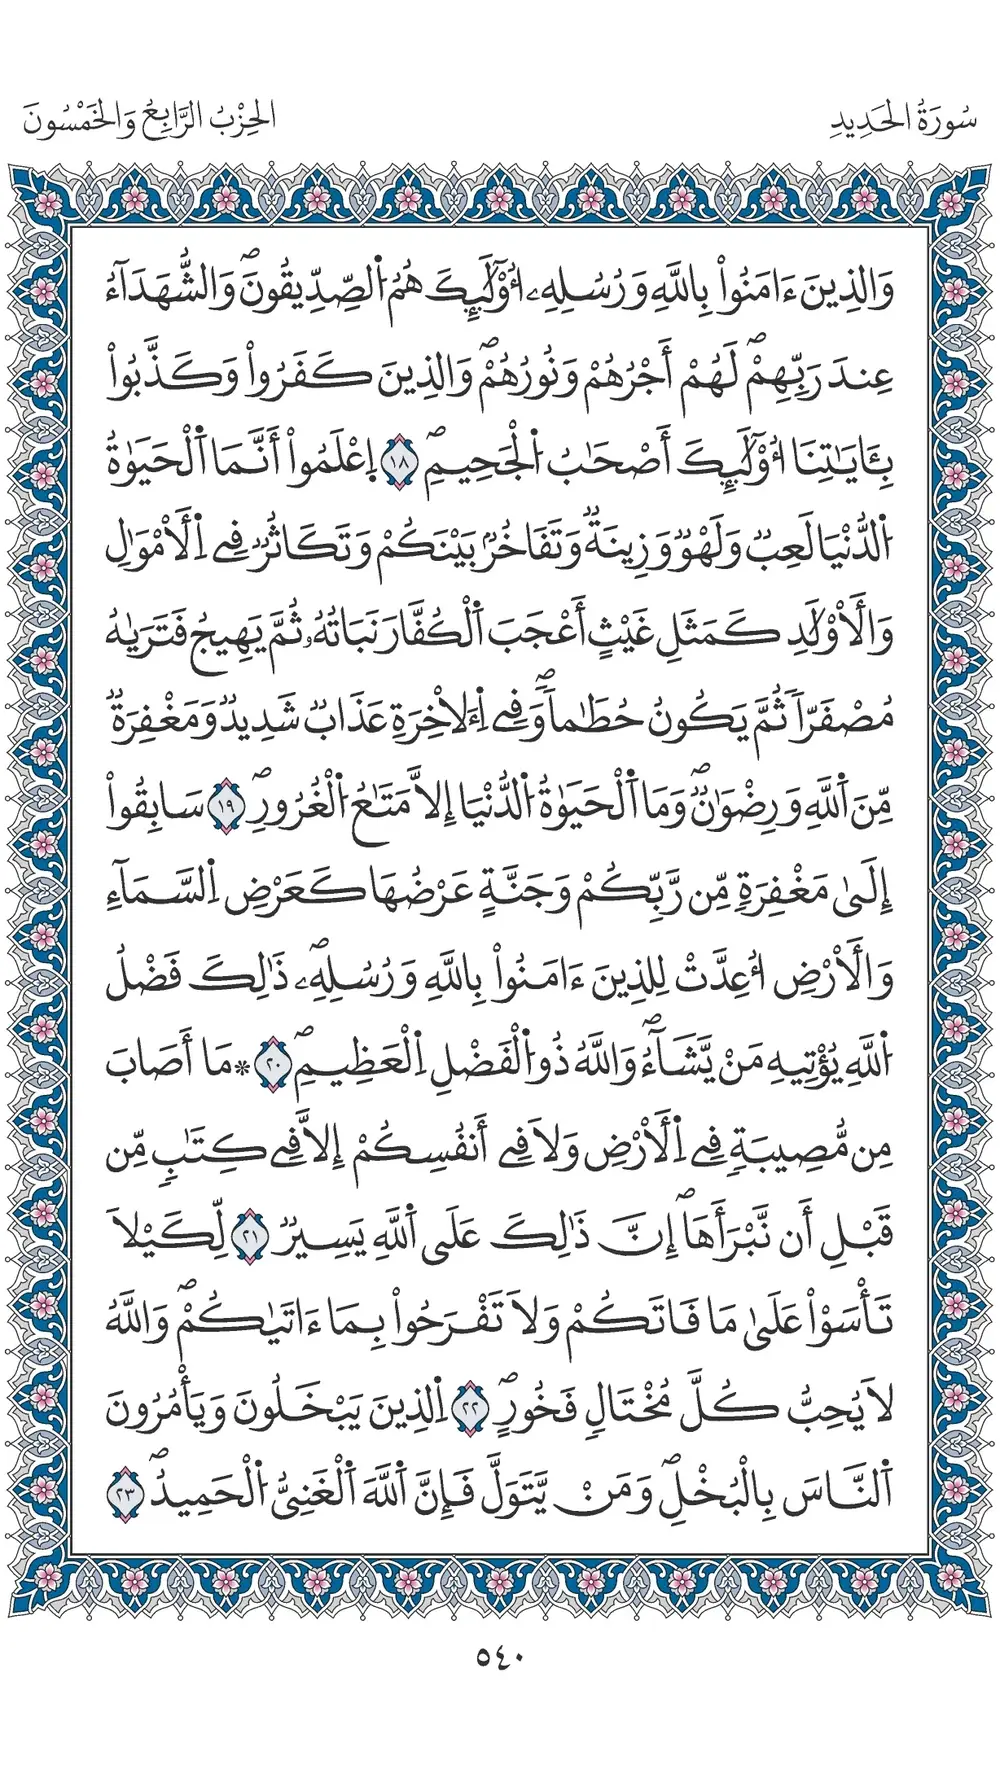 سُورَةُ الحَدِيدِ
الحِزْبُ الرَّابِعُ وَالخَمْسُونَ
وَالذِينَ ءَامَنُواْ بِاللَّهِ وَرُسُلِهِۦ أُوْلَٰٓئِكَ هُمُ اُ۬لصِّدِّيقُونَۖ وَالشُّهَدَآءُ
عِندَ رَبِّهِمْۖ لَهُمْ أَجْرُهُمْ وَنُورُهُمْۖ وَالذِينَ كَفَرُواْ وَكَذَّبُواْ
بِـَٔايَٰتِنَا أُوْلَٰٓئِكَ أَصْحَٰبُ اُ۬لْجَحِيمِۖ ١٨ اِ۪عْلَمُواْ أَنَّمَا اَ۬لْحَيَوٰةُ
اُ۬لدُّنْيَا لَعِبٌ وَلَهْوٌ وَزِينَةٌ وَتَفَاخُرٌۢ بَيْنَكُمْ وَتَكَاثُرٌ فِے اِ۬لَامْوَٰلِ
وَالَاوْلَٰدِ كَمَثَلِ غَيْثٍ أَعْجَبَ اَ۬لْكُفَّارَ نَبَاتُهُۥ ثُمَّ يَهِيجُ فَتَرَيٰهُ
مُصْفَرّاٗ ثُمَّ يَكُونُ حُطَٰماٗۖ وَفِے اِ۬لَاخِرَةِ عَذَابٌ شَدِيدٌ وَمَغْفِرَةٌ
مِّنَ اَ۬للَّهِ وَرِضْوَٰنٌۖ وَمَا اَ۬لْحَيَوٰةُ اُ۬لدُّنْيَا إِلاَّ مَتَٰعُ اُ۬لْغُرُورِۖ ١٩ سَابِقُواْ
إِلَىٰ مَغْفِرَةٍ مِّن رَّبِّكُمْ وَجَنَّةٍ عَرْضُهَا كَعَرْضِ اِ۬لسَّمَآءِ
وَالَارْضِ أُعِدَّتْ لِلذِينَ ءَامَنُواْ بِاللَّهِ وَرُسُلِهِۦۖ ذَٰلِكَ فَضْلُ
اُ۬للَّهِ يُؤْتِيهِ مَنْ يَّشَآءُۖ وَاللَّهُ ذُو اُ۬لْفَضْلِ اِ۬لْعَظِيمِۖ ٢٠ ۞ مَا أَصَابَ
مِن مُّصِيبَةٍ فِے اِ۬لَارْضِ وَلَا فِے أَنفُسِكُمْ إِلاَّ فِے كِتَٰبٍ مِّن
قَبْلِ أَن نَّبْرَأَهَاۖ إِنَّ ذَٰلِكَ عَلَى اَ۬للَّهِ يَسِيرٌ ٢١ لِّكَيْلَا
تَأْسَوْاْ عَلَىٰ مَا فَاتَكُمْ وَلَا تَفْرَحُواْ بِمَا ءَاتَيٰكُمْۖ وَاللَّهُ
لَا يُحِبُّ كُلَّ مُخْتَالٍ فَخُورٍۖ ٢٢ اِ۬لذِينَ يَبْخَلُونَ وَيَأْمُرُونَ
اَ۬لنَّاسَ بِالْبُخْلِۖ وَمَنْ يَّتَوَلَّ فَإِنَّ اَ۬للَّهَ اَ۬لْغَنِيُّ اُ۬لْحَمِيدُۖ ٢٣
٥٤٠